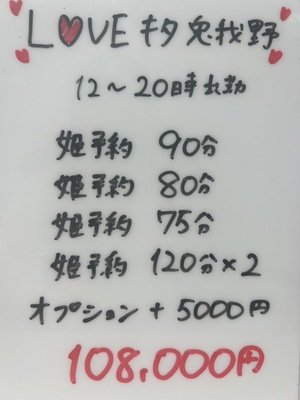 LOVE キタ兎我野
12～20時出勤
姫予約 90分
姫予約 80分
姫予約 75分
姫予約 120分×2
オプション + 5000円
108,000円